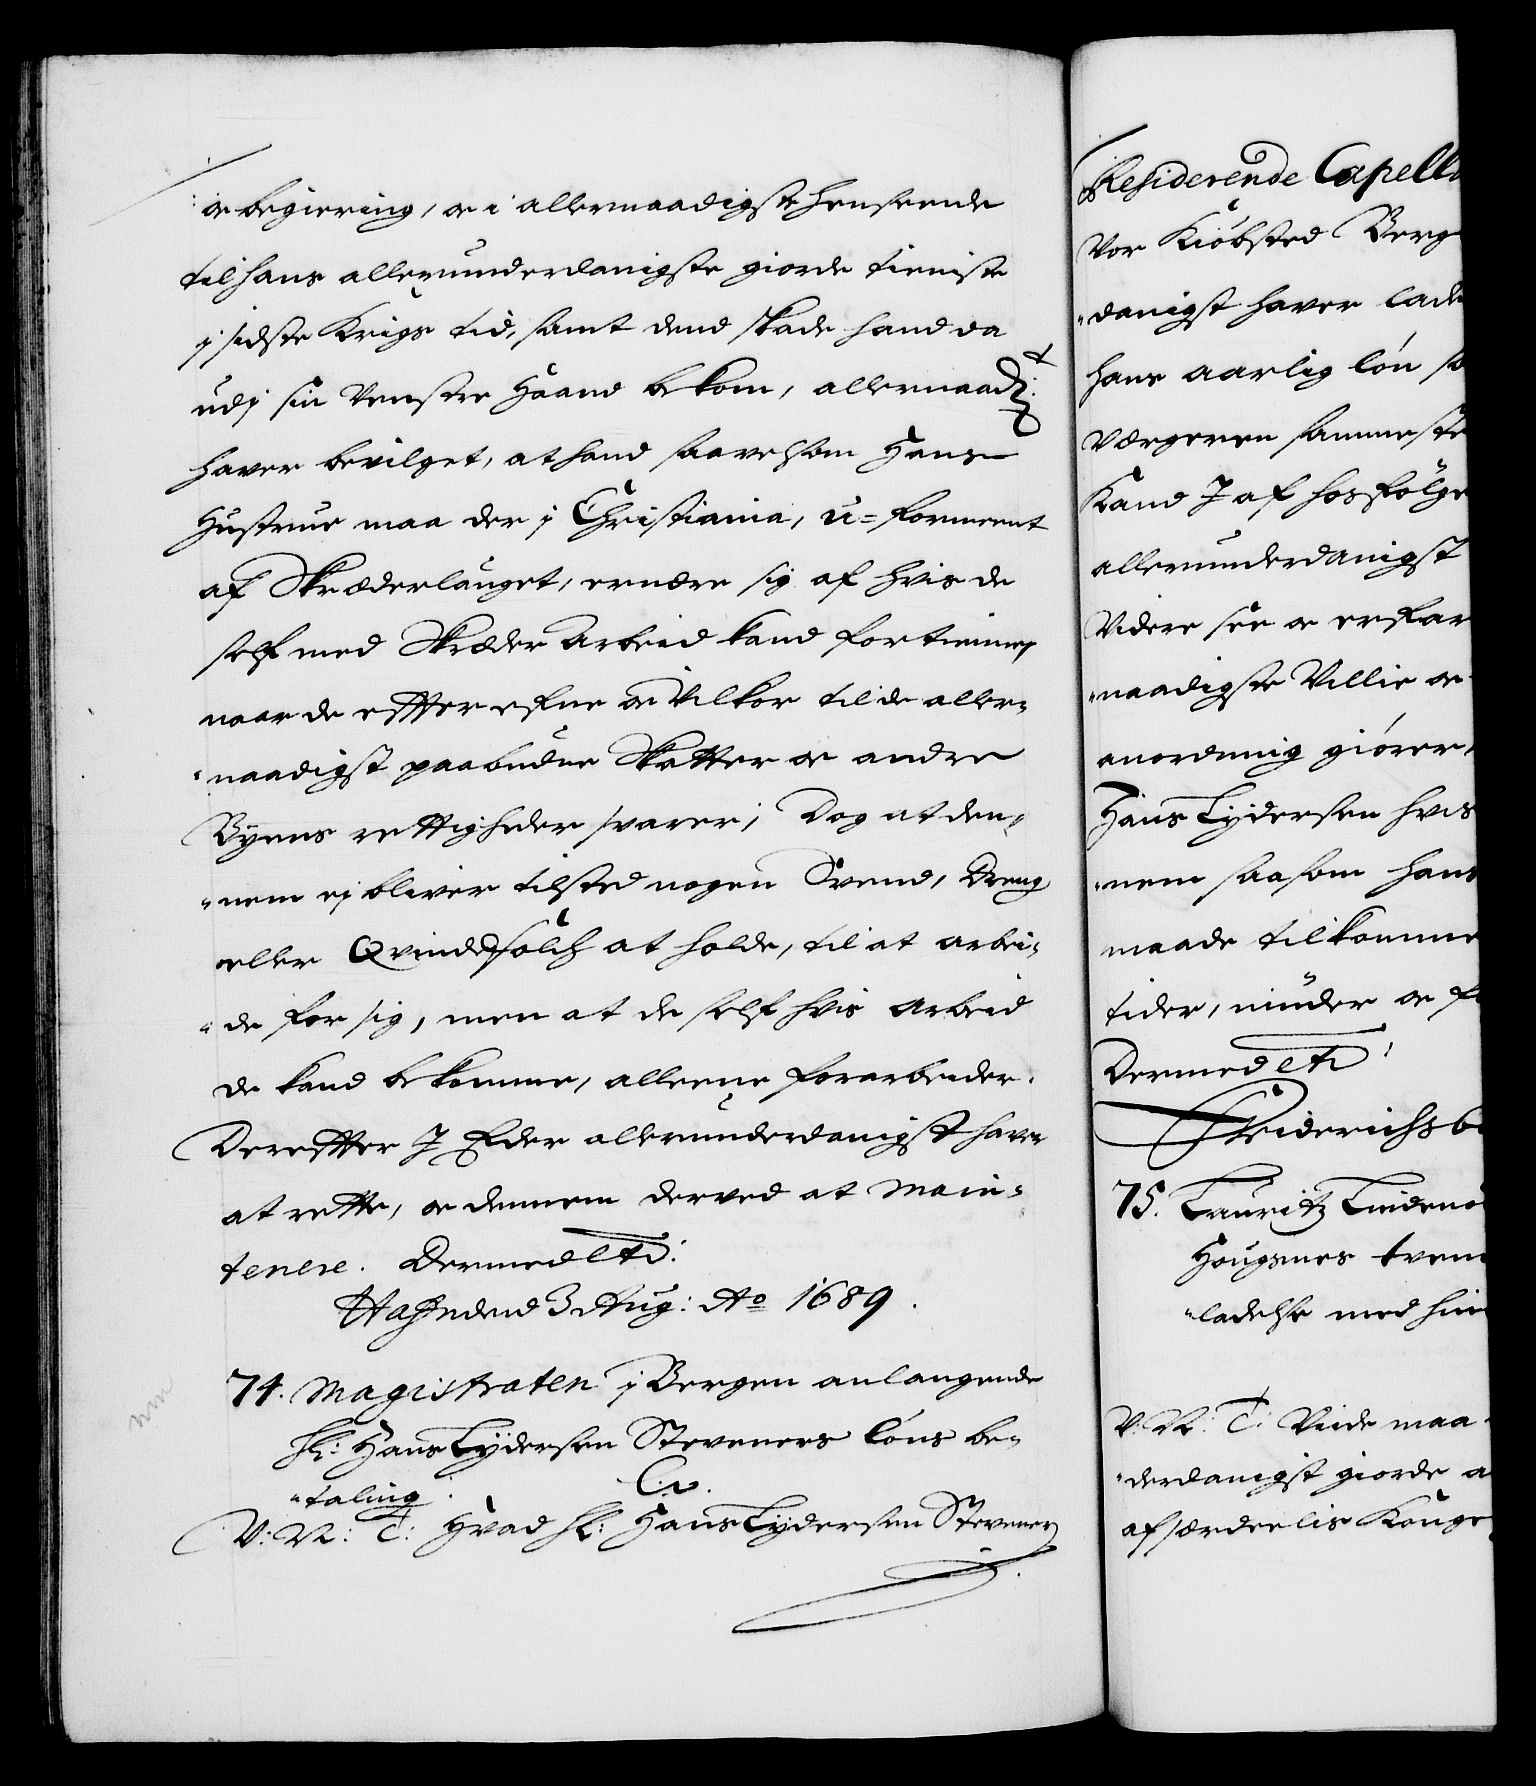 og begiering, og i allernaadigste henseende
til hans allerunderdanigste giorde tieniste
i sidste Krigs tid, samt dend skade hand da
udj sin Venstre Haand bekom, allernaadi:
haver bevilget, at hand saavelsom Hans
Hustrue maa der i Christiania, u=formeent
af Skræderlauget, ernære sig af hvis de
self med Skræder Arbeid kand fortienne,
naar de effter efne og Vilkor til de aller„
„naadigst paabudne Skatter og andre
Byens rettigheder svarer; Dog at den„
„nem ej bliver tilsted nogen Svend, Dreng
eller Qvindefolch at holde, til at arbei„
„de for sig, men at de self hvis arbeid
de kand bekomme, alleene forarbeider.
Dereffter I Eder allerunderdanigst haver
at rette, og dennem derved at main„
tenere. Dermed etc:
Hafn dend 3 Aug: Ao 1689.
74. Magistraten i Bergen anlangende
Sl: Hans Lydersen Steveners löns be„
„taling. C.v.
V: N: T: Hvad Sl: Hans Lydersen Stevener
Residerende Capell
Vor Kiöbsted Berg
„danigst haver lade
hans aarlig lön s
Værgeren sammeste
Kand I af hosfölge
allerunderdanigst
Videre see og erfar
„naadigste Villie og
anordning giörer,
Hans Lydersen hvis
„nem saasom hans
maade tilkomme
tider, minder og f
Dermed etc:
Friderichsb
75. Lauritz Lindeno
Hougsnes tven
„ladelse med hin
V: N: T: Viide maa
„derdanigst giorde a
af særdeelis Konge